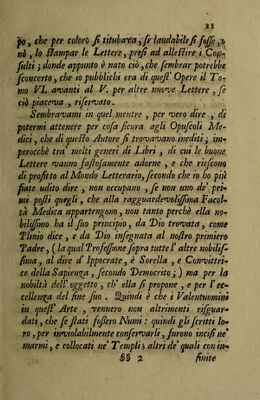 11
po, che per coloro ſi titubava, ſe laudabile ſi foſſe, o
nò, lo ſtampar le Lettere, preſi ad alleſtire i Con-
ſulti; donde appunto è nato ciò, che ſembrar potrebbe
ſconcerto, che io pubblichi ora di queſt' Opere il To-
mo VI. avanti al V. per altre nuove Lettere, ſe
ciò piaceva, riſervato.
Sembravami in quel mentre, per vero dire, di
potermi attenere per coſa ſicura agli Opuſcoli Me-
dici, che di queſto Autore ſi trovavano inediti; im-
perocchè tra' molti generi di Libri, di cui le buone
Lettere vanno faſtoſamente adorne, e che rieſcono
di profitto al Mondo Letterario, ſecondo che io ho più
fiate udito dire, non occupano, ſe non uno de' pri-
mi poſti quegli, che alla ragguardevoliſſima Facol-
tà Medica appartengono, non tanto perchè ella no-
biliſſimo ha il ſuo principio, da Dio trovata, come
Plinio dice, e da Dio inſegnata al noſtro primiero
Padre, (la qual Profeſſione ſopra tutte l' altre nobiliſ-
ſima, al dire d' Ippocrate, è Sorella, e Convittri-
ce della Sapienza, ſecondo Democrito;) ma per la
nobiltà dell' oggetto, ch' ella ſi propone, e per l' ec-
cellenza del fine ſuo. Quindi è che i Valentuomini
in queſt' Arte, vennero non altrimenti riſguar-
dati, che ſe ſtati foſſero Numi: quindi gli ſcritti lo-
ro, per inviolabilmente conſervarli, furono inciſi ne'
marmi, e collocati ne' Templi; altri de' quali con in-
§§ 2 finite